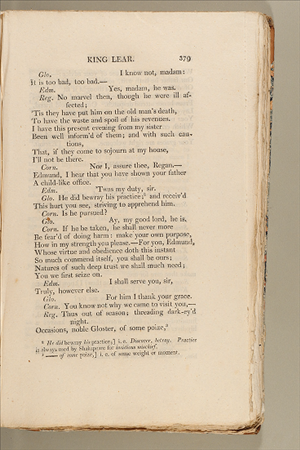 KING LEAR. 379
Glo. I know not, madam:
It is too bad, too bad.—
Edm. Yes, madam, he was.
Reg. No marvel then, though he were ill af-
fected;
'Tis they have put him on the old man's death,
To have the waste and spoil of his revenues.
I have this present evening from my sister
Been well inform'd of them; and with such cau-
tions,
That, if they come to sojourn at my house,
I'll not be there.
Corn. Nor I, assure thee, Regan.—
Edmund, I hear that you have shown your father
A child-like office.
Edm. 'Twas my duty, sir.
Glo. He did bewray his practice;⁵ and receiv'd
This hurt you see, striving to apprehend him.
Corn. Is he pursued?
Glo. Ay, my good lord, he is.
Corn. If he be taken, he shall never more
Be fear'd of doing harm: make your own purpose,
How in my strength you please.—For you, Edmund,
Whose virtue and obedience doth this instant
So much commend itself, you shall be ours;
Natures of such deep trust we shall much need;
You we first seize on.
Edm. I shall serve you, sir,
Truly, however else.
Glo. For him I thank your grace.
Corn. You know not why we came to visit you,—
Reg. Thus out of season; threading dark-ey'd
night.
Occasions, noble Gloster, of some poize,⁶
⁵ He did bewray his practice;] i. e. Discover, betray. Practice
is always used by Shakspeare for insidious mischief.
⁶ —— of some poize,] i. e. of some weight or moment.